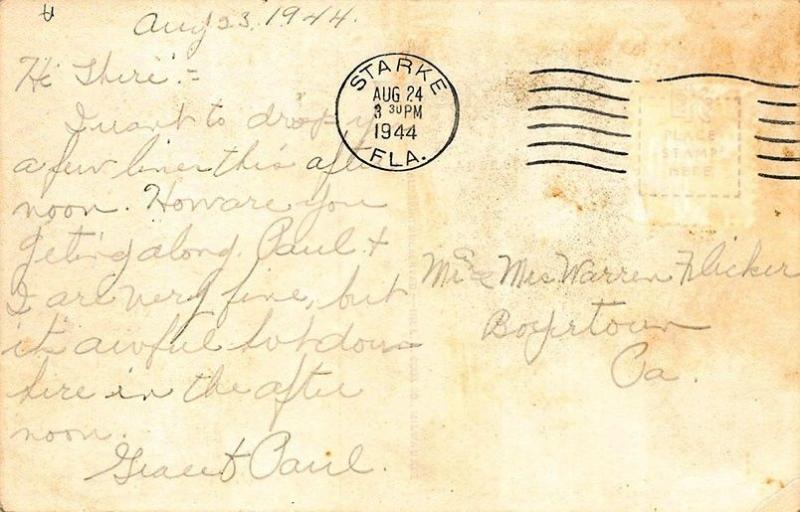 Aug 23, 1944.
Hi There:=
I want to drop y
a few lines this after
noon. How are you
geting along. Paul &
I are very fine, but
it's awful hot down
here in the after
noon.
Grace & Paul.
STARKE
AUG 24
3 30 PM
1944
FLA.
PLACE
STAMP
HERE
Mr & Mrs Warren Flicker
Boyertown
Pa.